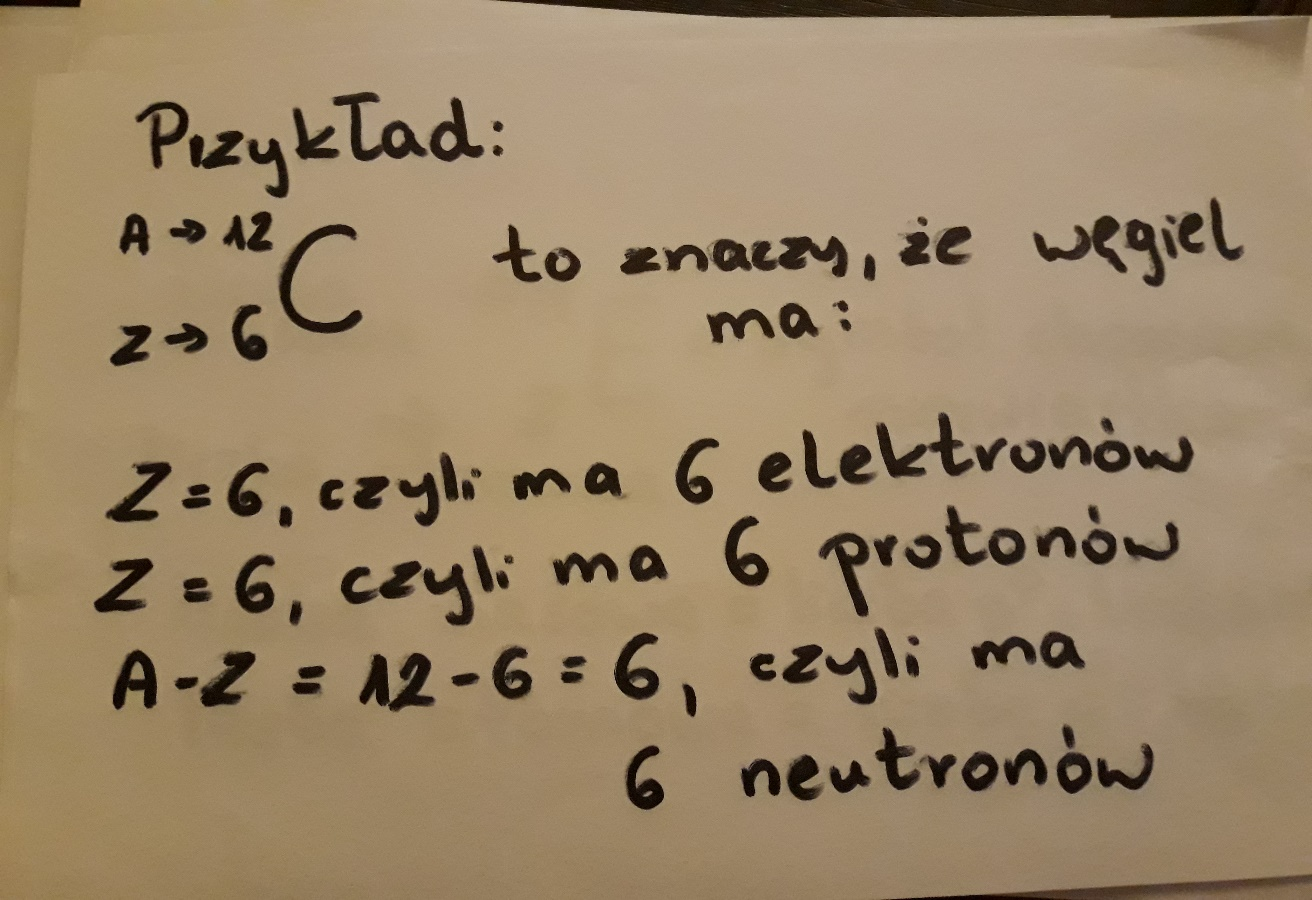 Przykład:
A → 12 C to znaczy, że węgiel
Z → 6 ma:
Z = 6, czyli ma 6 elektronów
Z = 6, czyli ma 6 protonów
A - Z = 12 - 6 = 6, czyli ma
6 neutronów